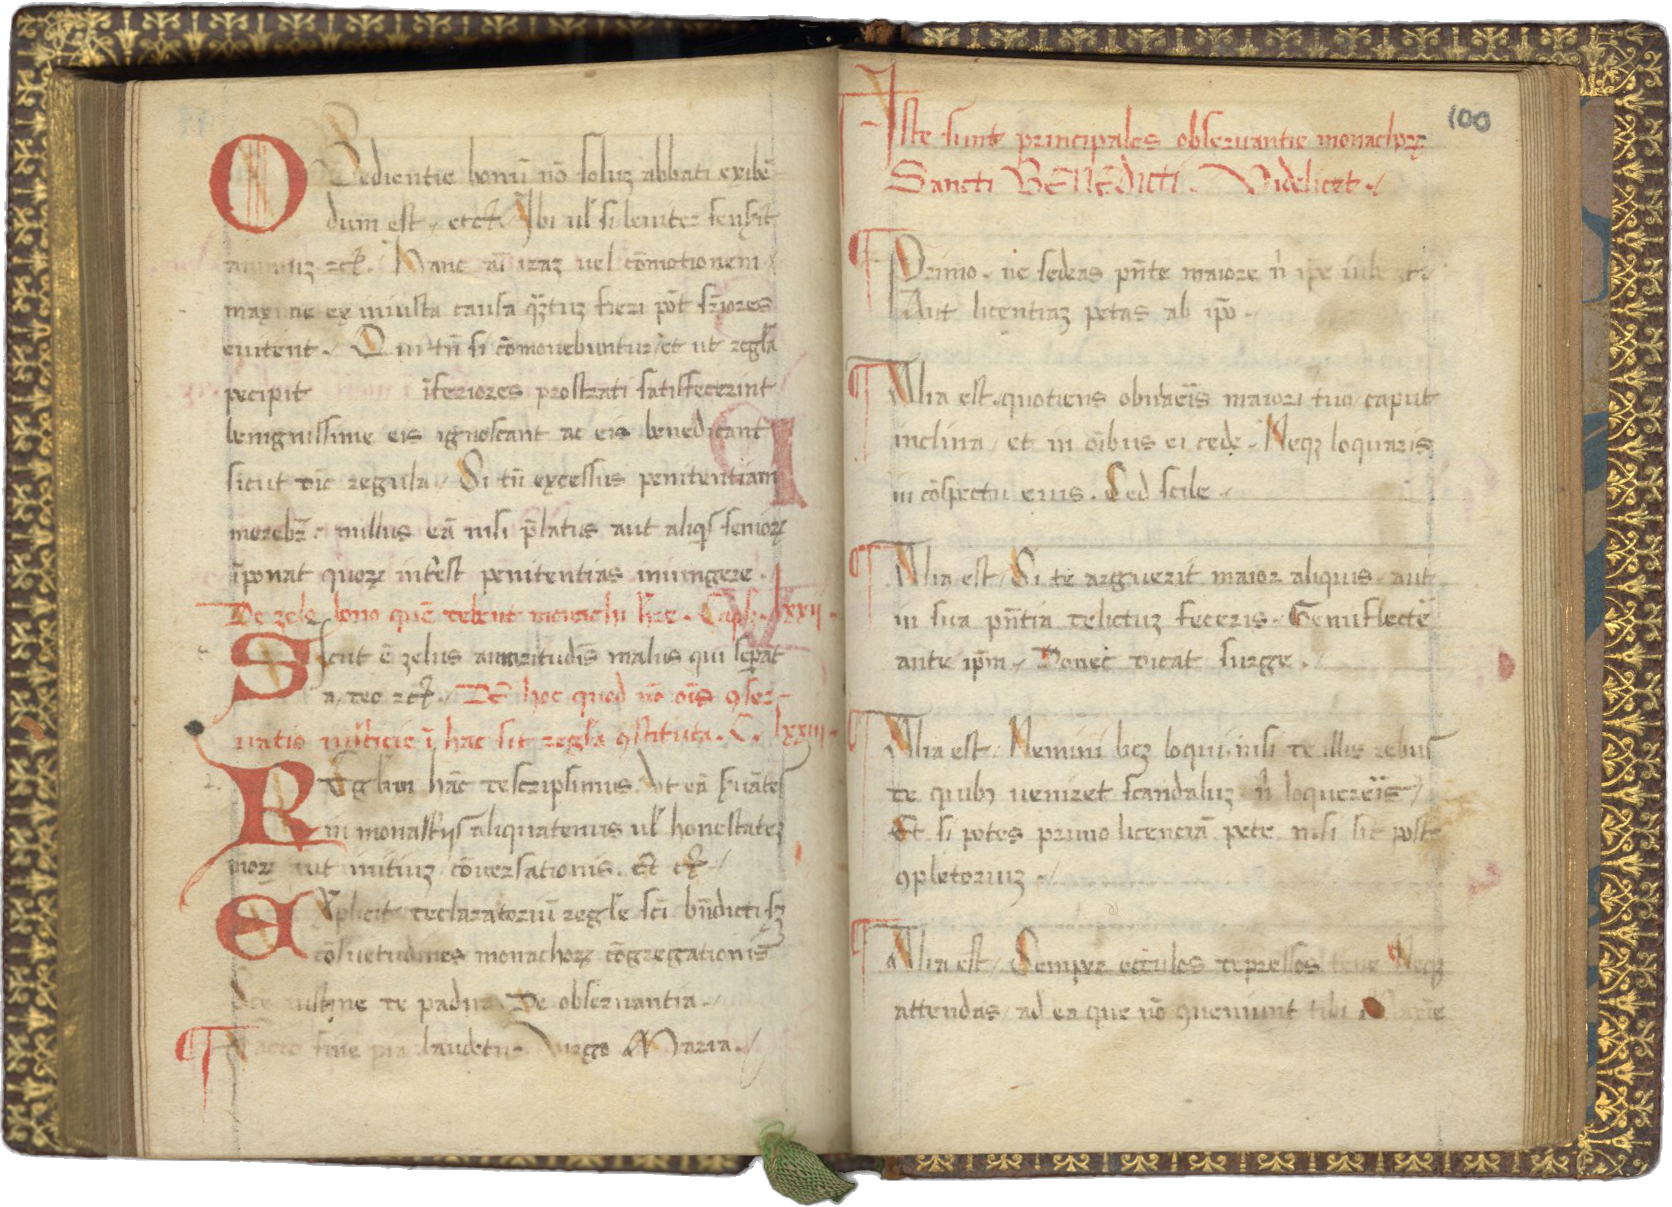 OBedientie bonū nō soluz abbati exibē-
dum est, etcẜ. Ibi uł si leuiter senserit
animuz zcẜ. Hanc aūt iraz uel cōmotionem
maxime ex iniusta causa q̄ztuz fieri pōt s̄riores
euitent. Qui tn̄ si cōmouebuntur, et ut regła
pecipit īferiores prostrati satisfecerint
benignissime eis ignoscant ac eis benedicant
sicut dic̄ regula, Si tn̄ excessus penitentiam
merebr̄. nullus eā nisi p̄latus aut aliq̄s senioꝝ
īponat quoꝝ intꝰest penitentias iniungere.
De zelo bono quē debent monachi h̄re. Cap. lxxii.
SIcut ē zelus amaritudīs malus qui sepat
a, deo zcẜ. DE hoc quod nō oīs ꝯser-
uatio iusticie ī hac sit regła ꝯstituta. C. lxxiii.
REgłam hāc descripsimus. Vt eā ẜuātes
in monastīis aliquatenus uł honestatez
moꝝ aut initiuz cōuersationis. Et cẜ.
EXplicit declaratoriū regłe sc̄i bn̄dicti sz
cōsuetudines monachoꝝ cōgregationis
Sc̄e iustine de padua De obseruantia.
¶ facto fine pia laudetur Virgo Maria.
100
Iste sunt principales obseruantie monachoꝝ
Sancti BENEDicti. Videlicet.
¶ Primo. ne sedeas pn̄te maiore n̄ ip̄e iub
Aut licentiaz petas ab ip̄o.
¶ Alia est, quotiens obuiaūis maiori tuo caput
inclina, et in oībus ei cede. Neqz loquaris
in cōspectu eius. Sed scile
¶ Alia est, Si te arguerit maior aliquis aut
in sua pn̄tia delictuz feceris. Genuflecte
ante ip̄m, Donec dicat surge.
¶ Alia est. Nemini licz loqui, nisi de illis rebus
de quibꝯ ueniret scandaluz n̄ loquereīs,
Et si potes primo licenciā pete. nisi sit post
ꝯpletoriuz
¶ Alia est, Semper oculos depressos tene Neqz
attendas, ad ea que nō ꝯueniunt tibi